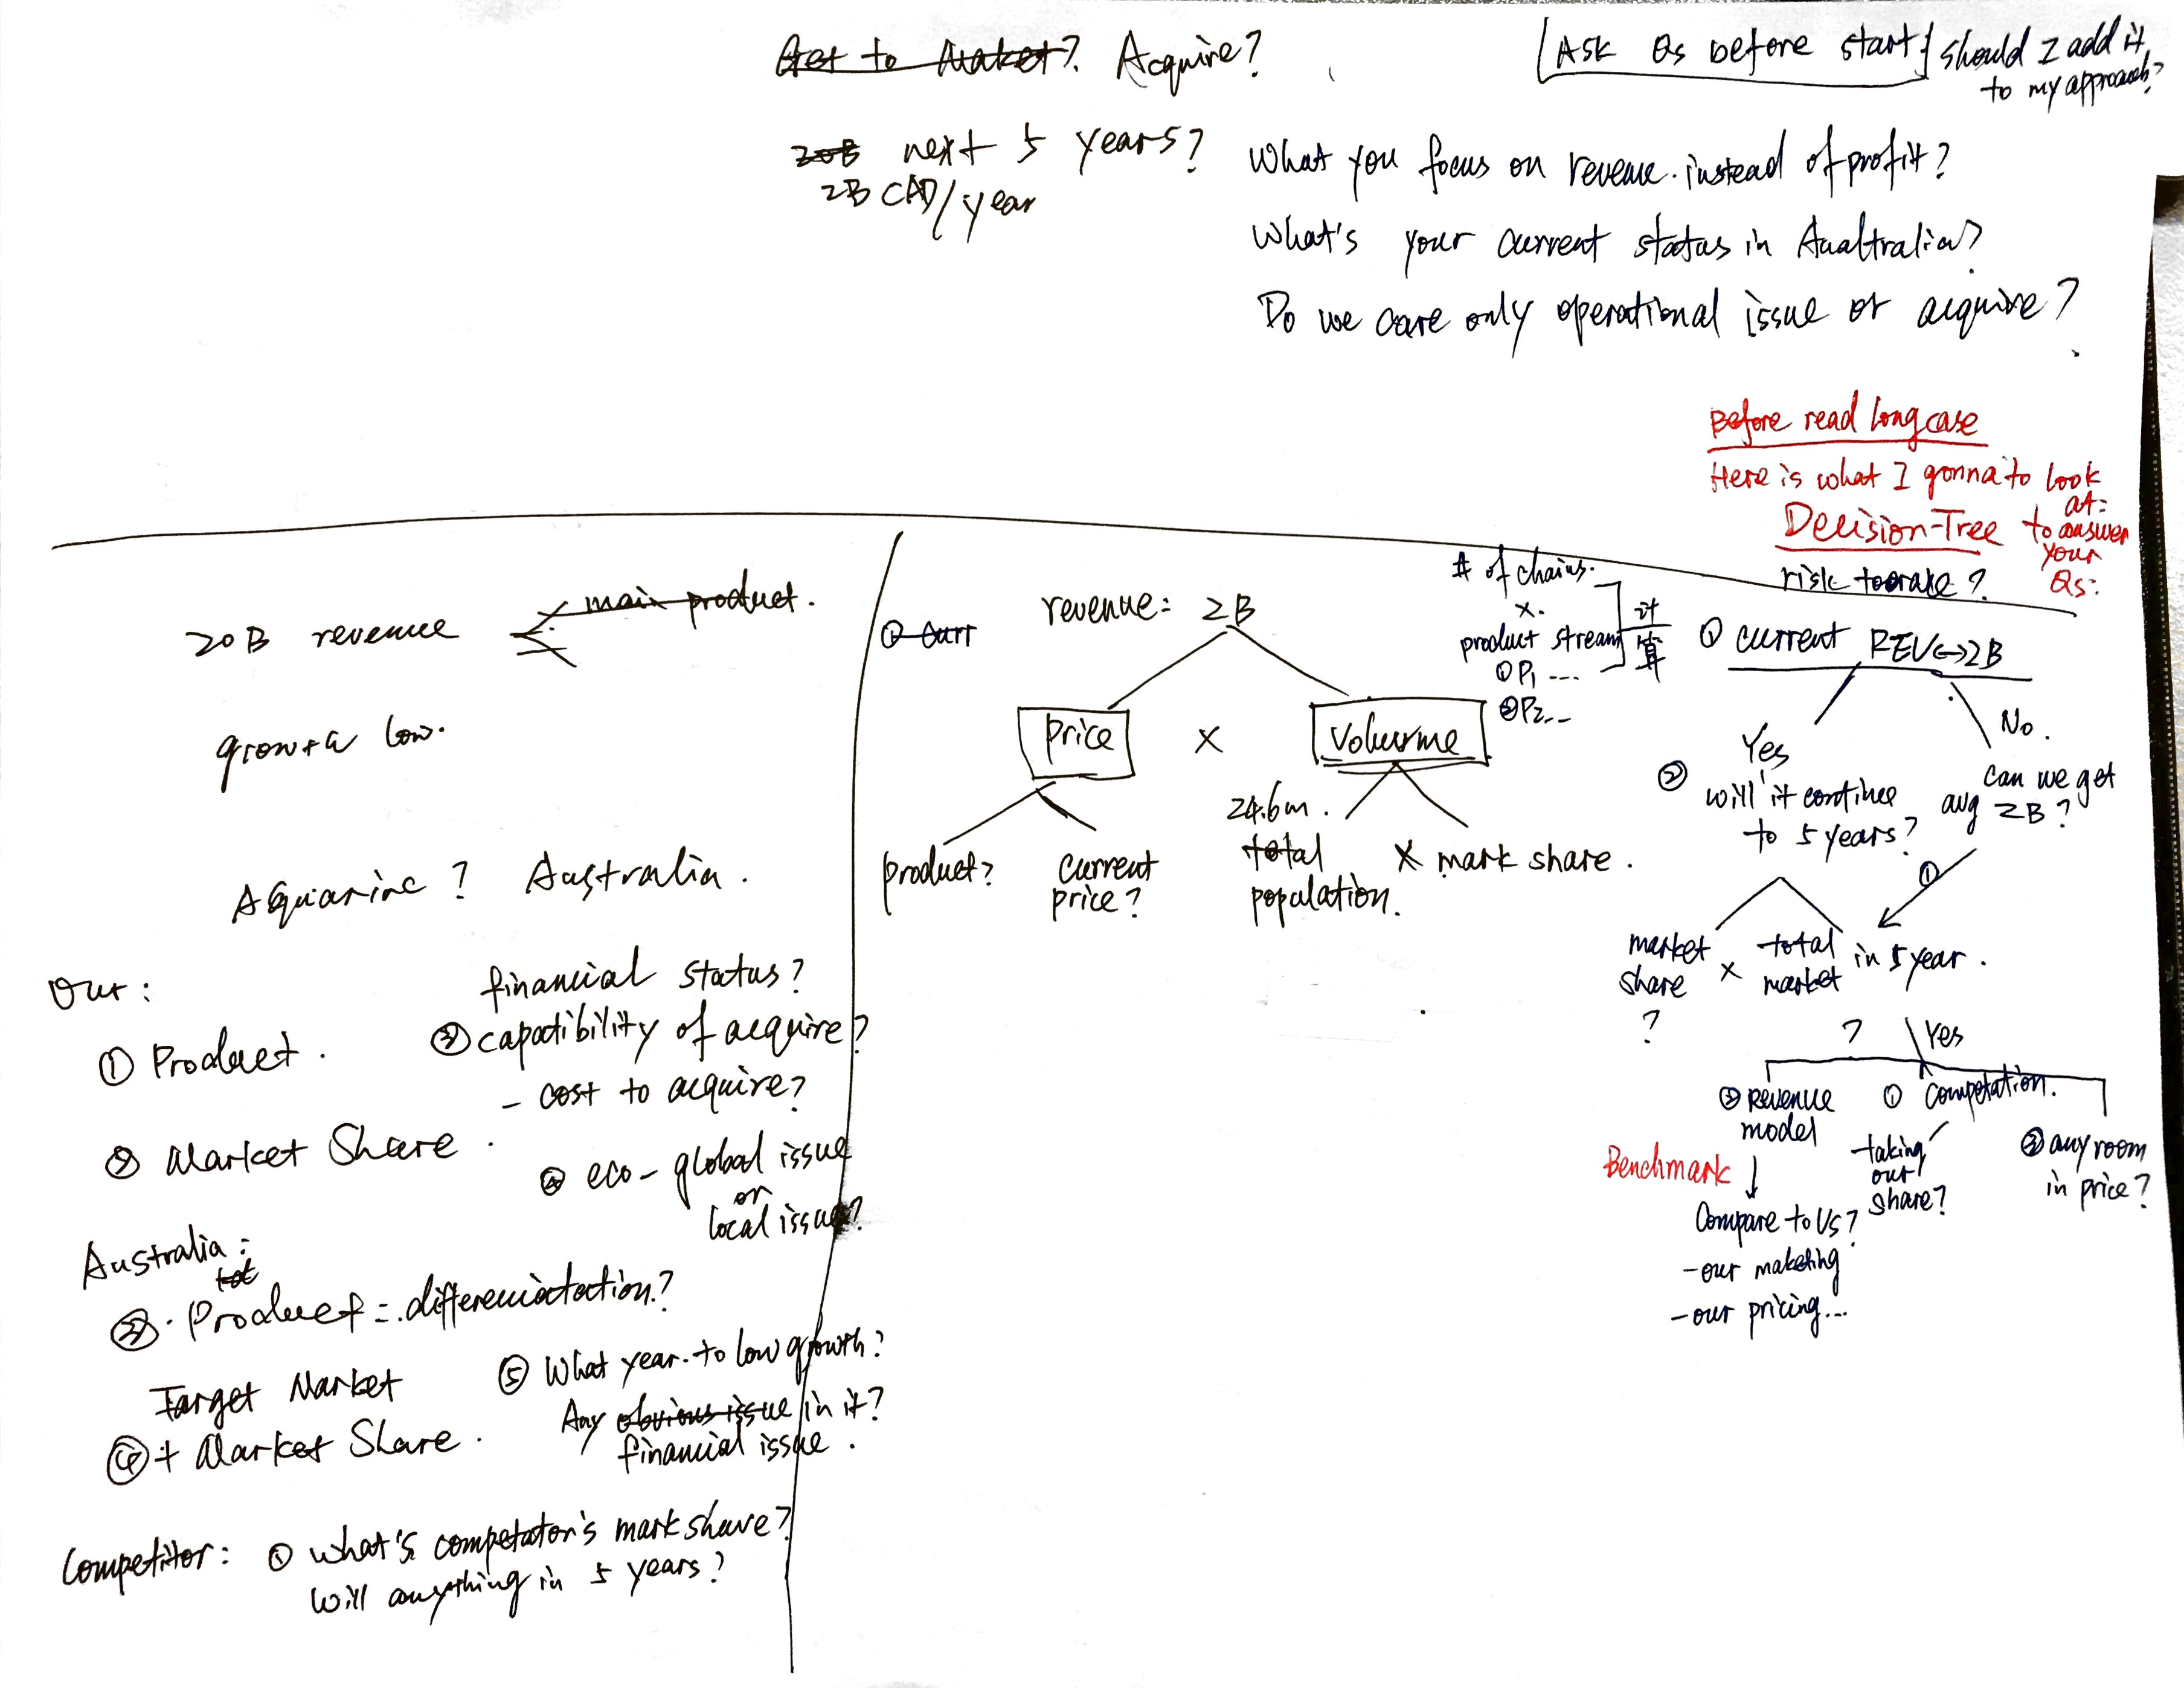 Get to Maket? Acquire?
20B next 5 years?
2B CAD/year
[Ask Qs before start] should I add it
to my approach?
What you focus on revenue. instead of profit?
What's your current status in Aualtralia?
Do we care only operational issue or acquire?
Before read long case
Here is what I gonna to look
at:
Decision-Tree to answer
your
Qs:
risk to
20B revenue
main product.
growth low.
? Australia.
Our:
① Product.
② Market Share.
financial status?
③ capatibility of acquire?
- cost to acquire?
④ eco- global issue
or
local issue?
Australia:
tot
③. Product = differenciatation?
Target Market
④ + Market Share.
⑤ What year. to low growth?
Any obvious issue in it?
financial issue.
Competitor: ① what's competator's mark share?
will anything in 5 years?
① Curr
revenue: 2B
price X Volume
product?
current
price?
24.6m.
total
population.
X mark share.
# of chains.
x.
product stream
① P1 ---
② P2--
计
算
① current REV<->2B
Yes
No.
② will it continue
to 5 years?
can we get
avg 2B?
①
market
share
?
x
total
market
in 5 year.
? Yes
② Revenue
model
① Competation.
taking
our
share?
③ any room
in price?
Benchmark
Compare to Us?
- our maketing
- our pricing...